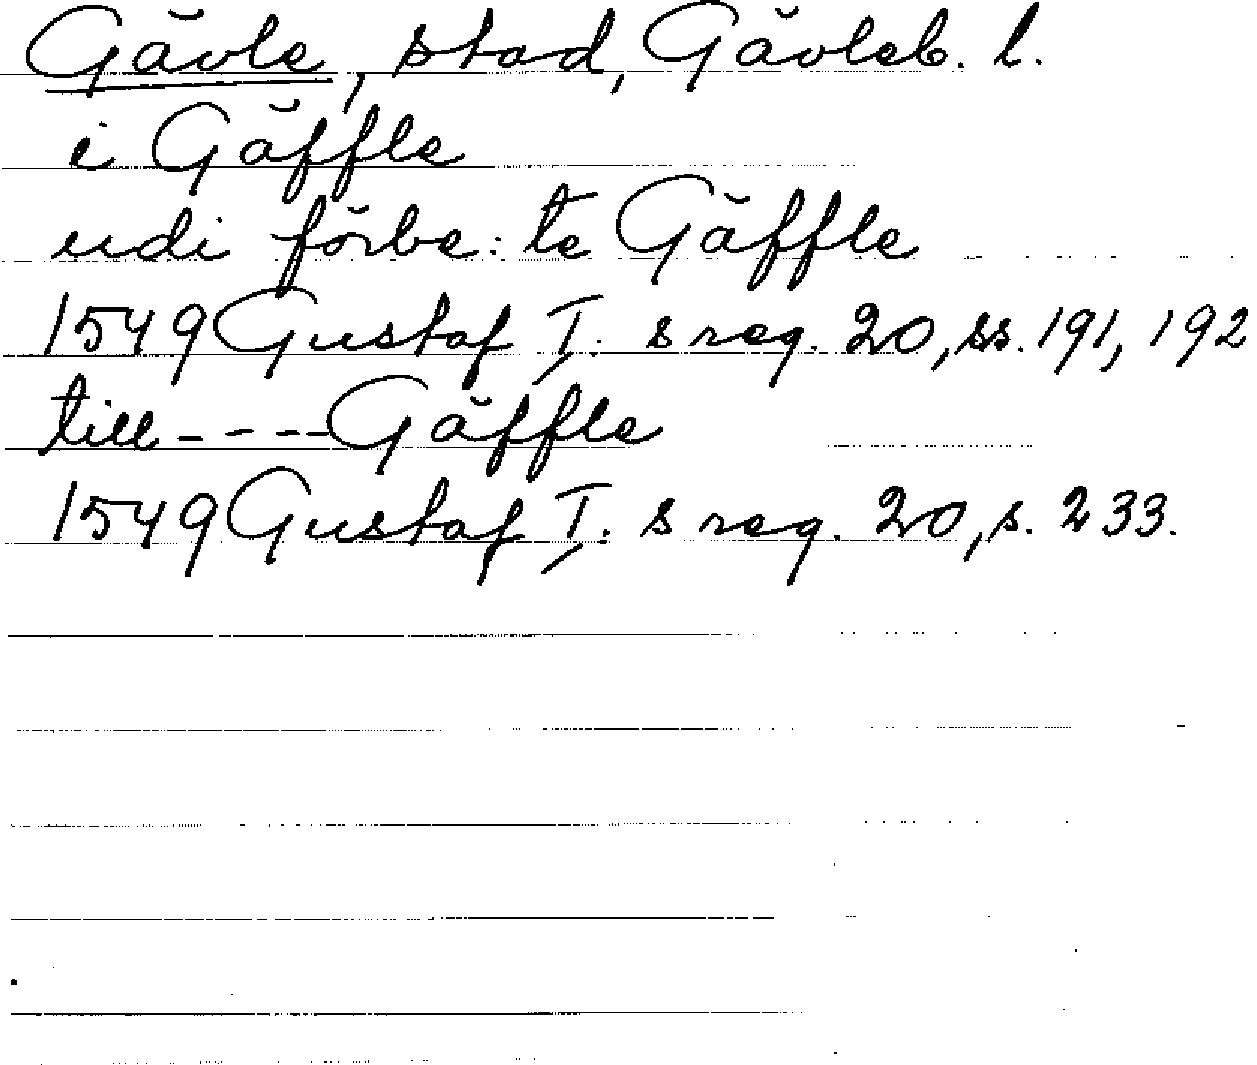 Gävle, stad, Gävleb. l.
i Gäffle
udi förbe:te Gäffle
1549 Gustaf I:s reg. 20, ss. 191, 192
till - - - - Gäffle
1549 Gustaf I:s reg. 20, s. 233.